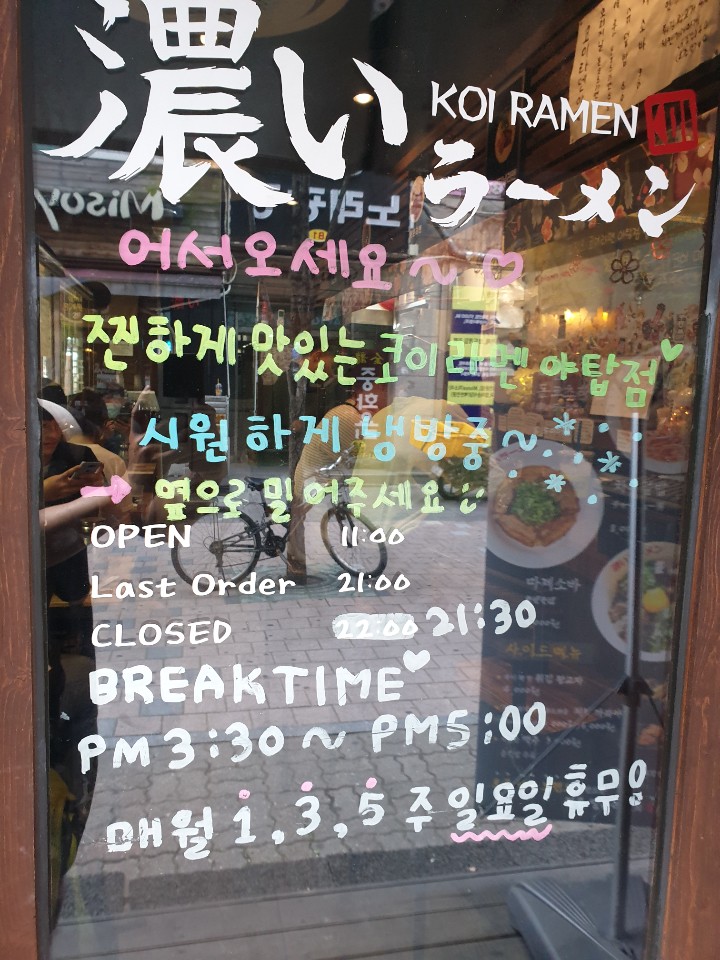 濃い
KOI RAMEN
KOI
ラーメン
Misoya
노래
B1
어서오세요~♡
찐하게 맛있는 코이라멘 야탑점♥
시원하게 냉방중~
→ 옆으로 밀어주세요
OPEN 11:00
Last Order 21:00
CLOSED 22:00 21:30
BREAKTIME♥
PM 3:30 ~ PM 5:00
매월 1, 3, 5 주 일요일 휴무임
마제소바
사이드메뉴